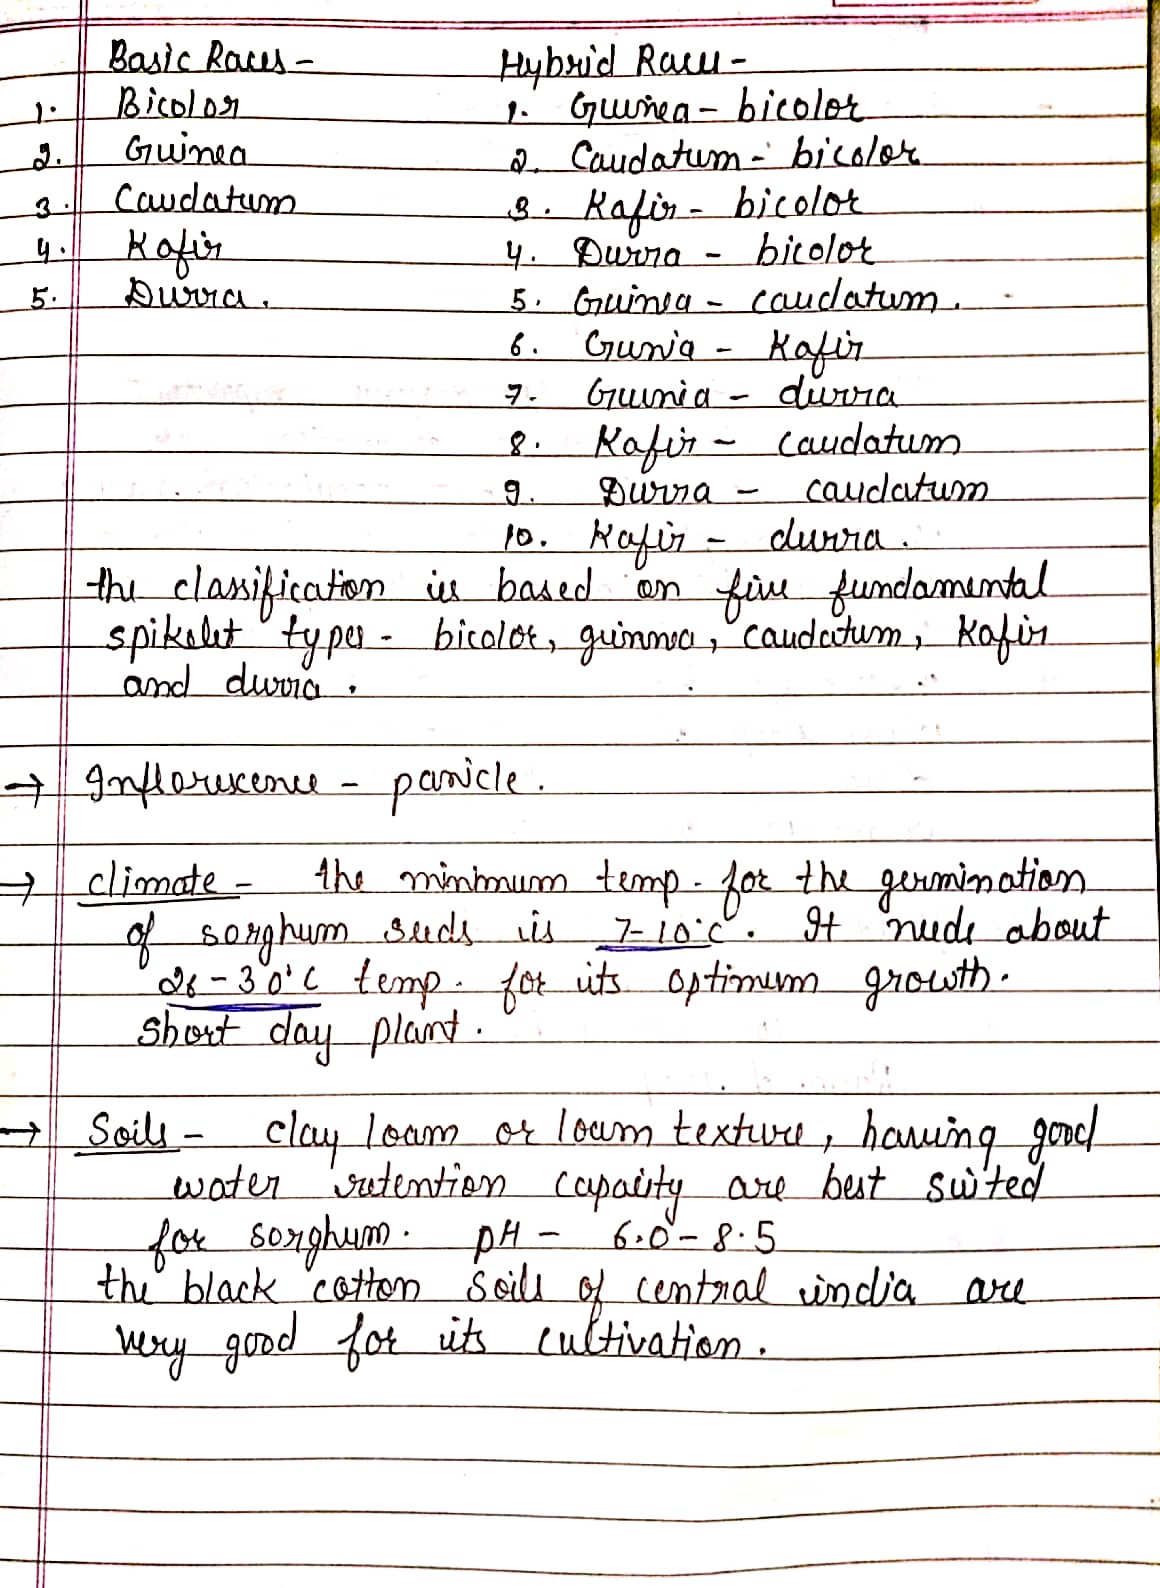 Basic Races - Hybrid Races -
1. Bicolor 1. Guinea - bicolor
2. Guinea 2. Caudatum - bicolor
3. Caudatum 3. Kafir - bicolor
4. Kafir 4. Durra - bicolor
5. Durra. 5. Guinea - caudatum.
6. Gunia - Kafir
7. Guinia - durra
8. Kafir - caudatum
9. Durra - caudatum
10. Kafir - durra.
the classification is based on five fundamental
spikelet types - bicolor, guinnea, caudatum, Kafir
and durra.
→ Inflorescence - panicle.
→ climate - the minimum temp. for the germination
of sorghum seeds is 7-10°C. It needs about
26-30°C temp. for its optimum growth.
Short day plant.
→ Soils - clay loam or loam texture, having good
water retention capacity are best suited
for sorghum. pH - 6.0 - 8.5
the black cotton soils of central india are
very good for its cultivation.